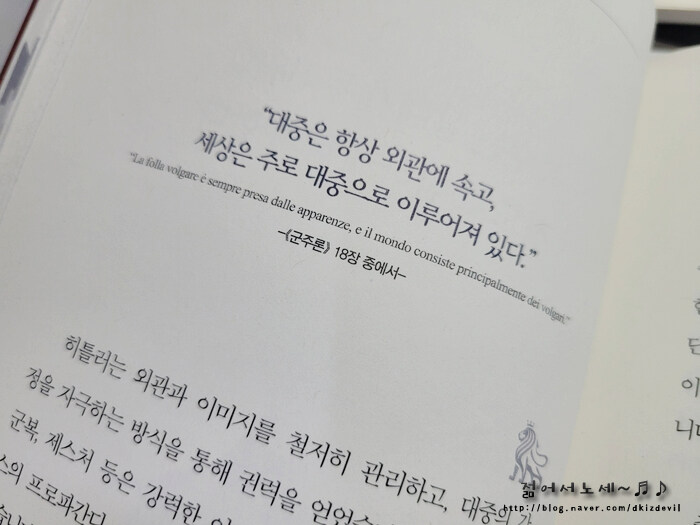 "대중은 항상 외관에 속고,
세상은 주로 대중으로 이루어져 있다."
"La folla volgare è sempre presa dalle apparenze, e il mondo consiste principalmente dei volgari."
-《군주론》 18장 중에서-
히틀러는 외관과 이미지를 철저히 관리하고, 대중의
정을 자극하는 방식을 통해 권력을 얻었
군복, 제스처 등은 강력한
스의 프로파간다
이
니다
젊어서노세~♬♪
http://blog.naver.com/dkizdevil